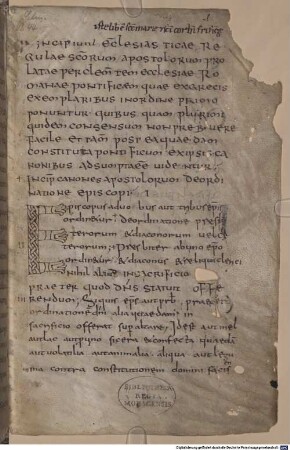 Iste liber
INCIPIUNT ECLESIASTICAE RE
GULAE SCORUM APOSTOLORUM PRO
LATAE PER CLEMTEM ECLESIAE RO
MANAE PONTIFICEM QUAE EX GRECIS
EXEMPLARIBUS IN ORDINE PRIMO
PONUNTUR QUIBUS QUAM PLURIMI
QUIDEM CONSENSUM NON PREBUERE
FACILE ET TAM POST EA QUAEDAM
CONSTITUTA PONTIFICUM EX IPSIS CA
NONIBUS ADSUMPTA ESSE VIDENTUR
INCIP CANONES APOSTOLORUM DE ORDI
NATIONE EPISCOPI I
Episcopus a duobus aut tribus epis
ordinetur de ordinatione presbi
terorum & diaconorum vel ce
terorum Presbiter ab uno epo
ordinetur & diaconus & reliqui cleri
Nihil aliud in sacrificio
PRAETER QUOD DNS STATUIT OFFE
RENDUM Siquis eps aut prb praeter
ordinationem dni alia quaedam in
sacrificio offerat super altare id est aut mel
aut lac aut pro vino sicera & confecta quaedam
aut volatilia aut animalia aliqua aut legu
mina contra constitutionem domini faciens
BIBLIOTHECA
REGIA
MONACENSIS